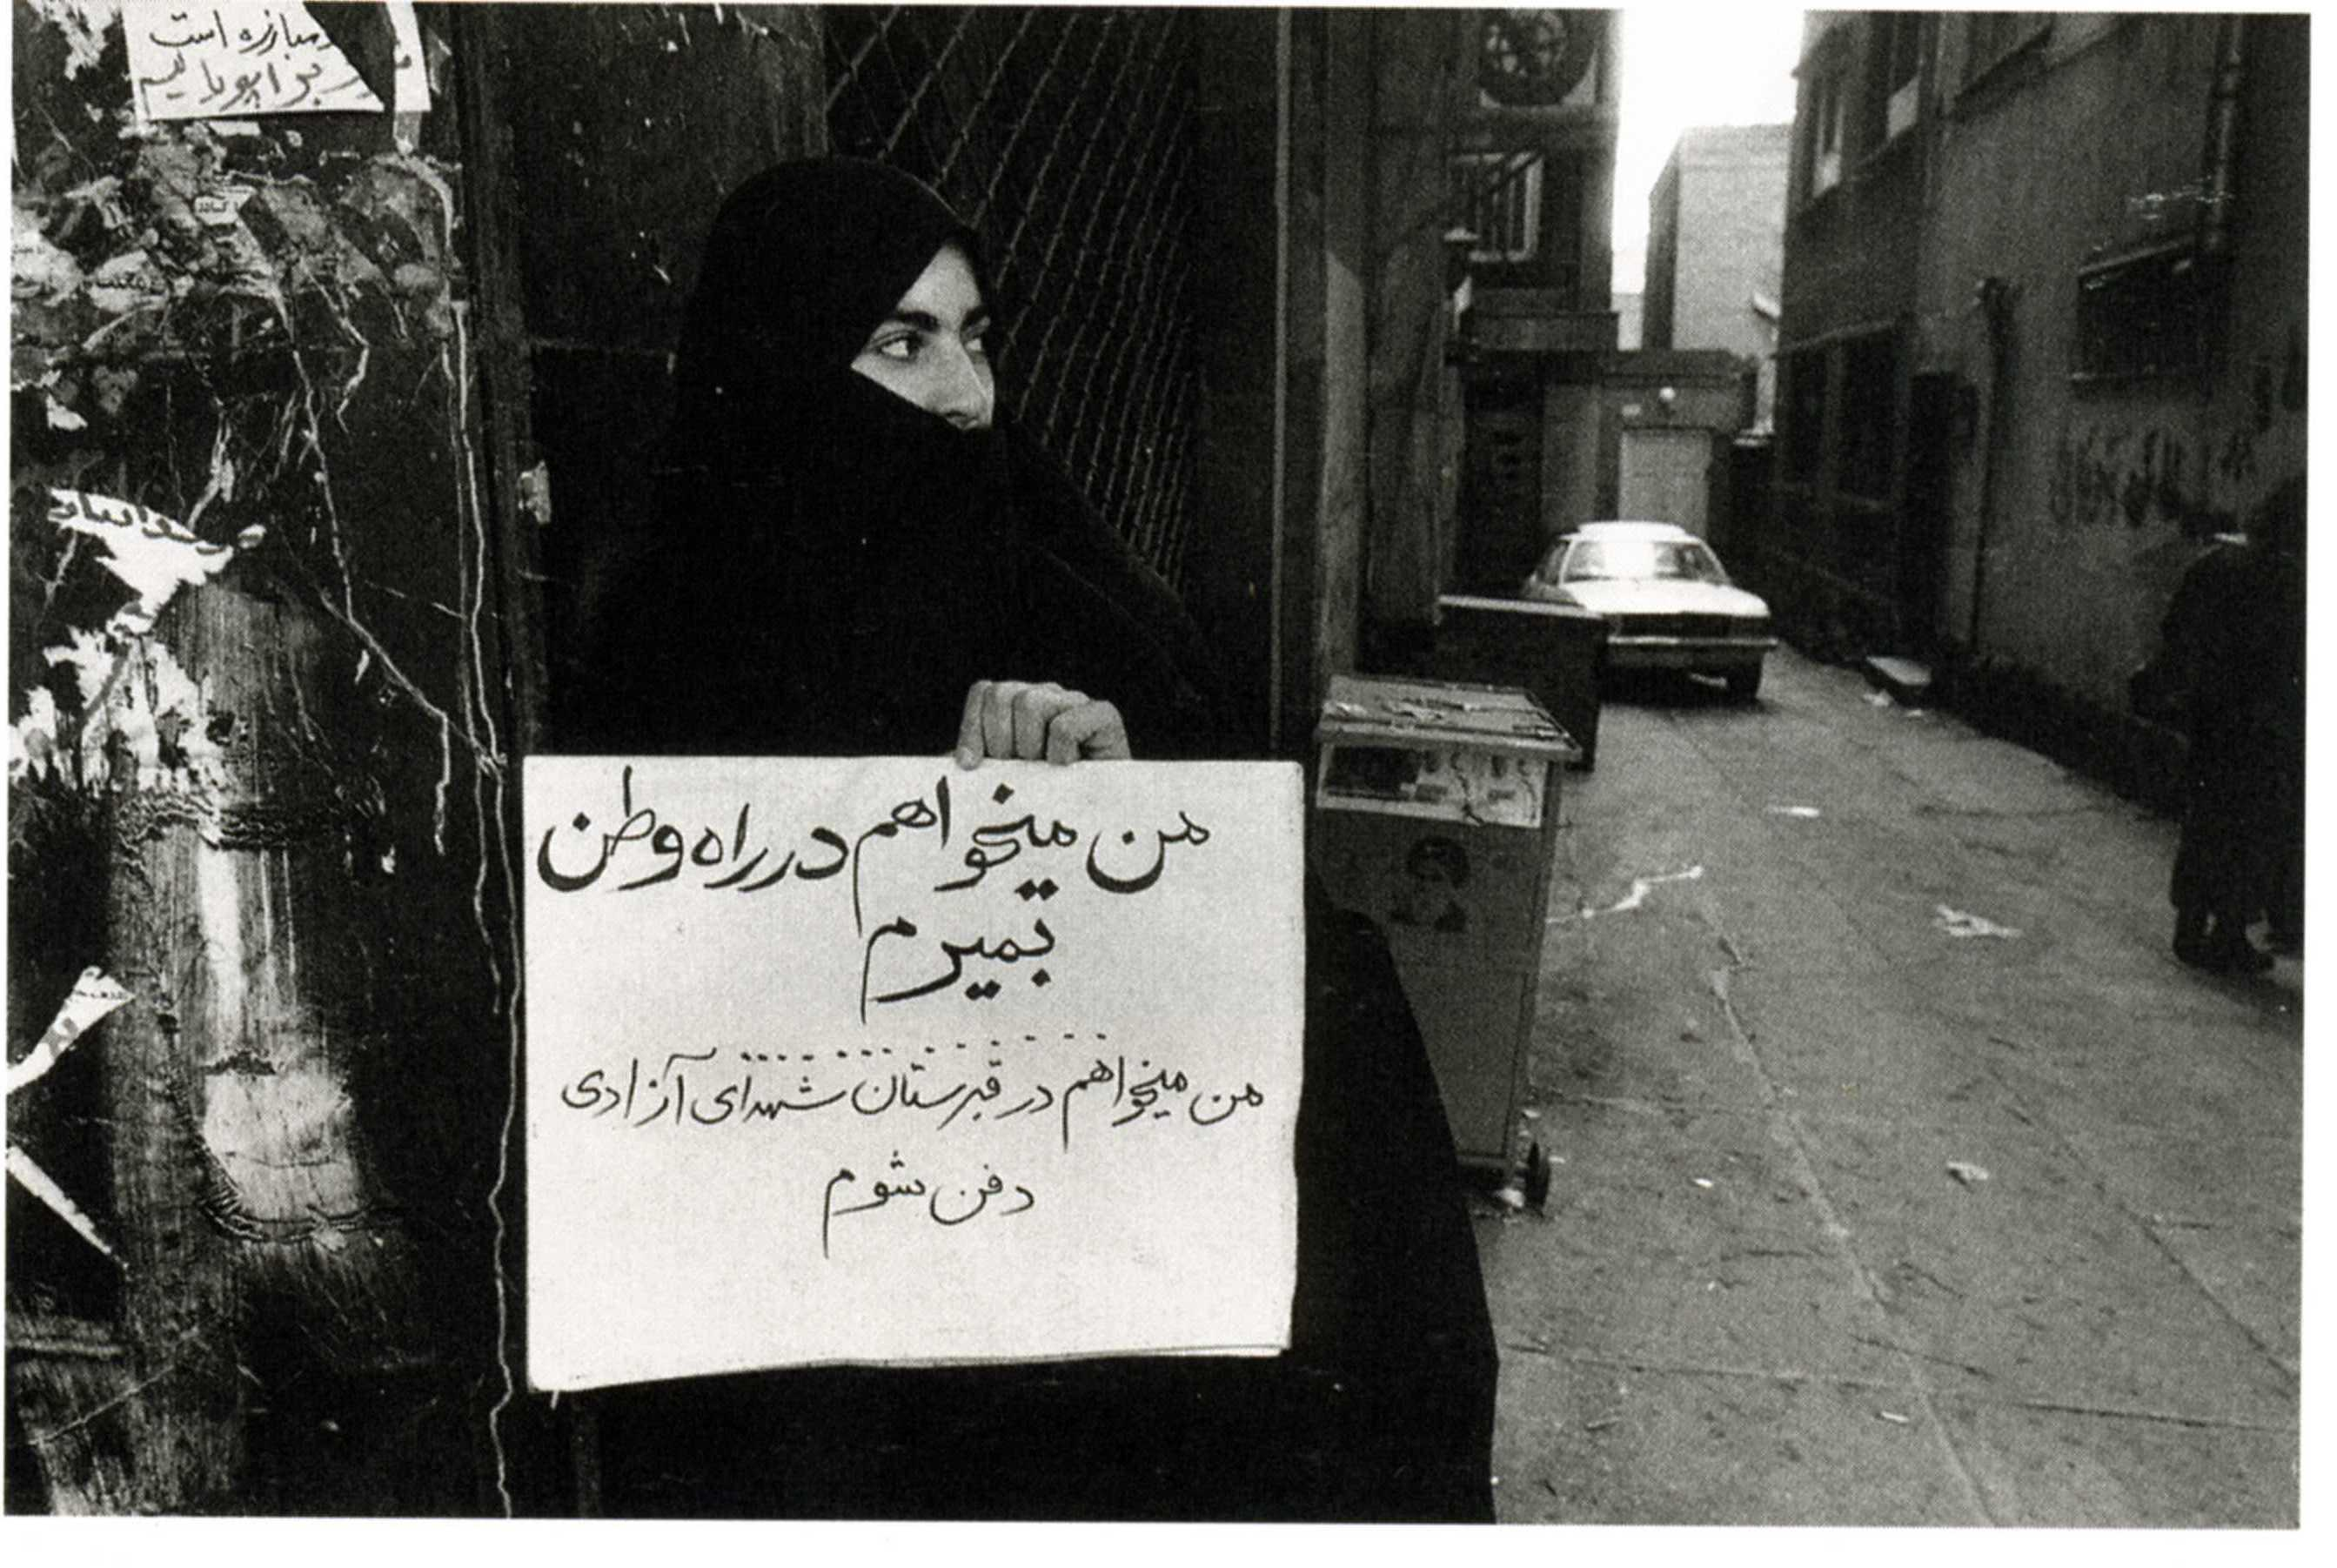 مبارزه است
من میخواهم در راه وطن
بمیرم
من میخواهم در قبرستان شهدای آزادی
دفن شوم